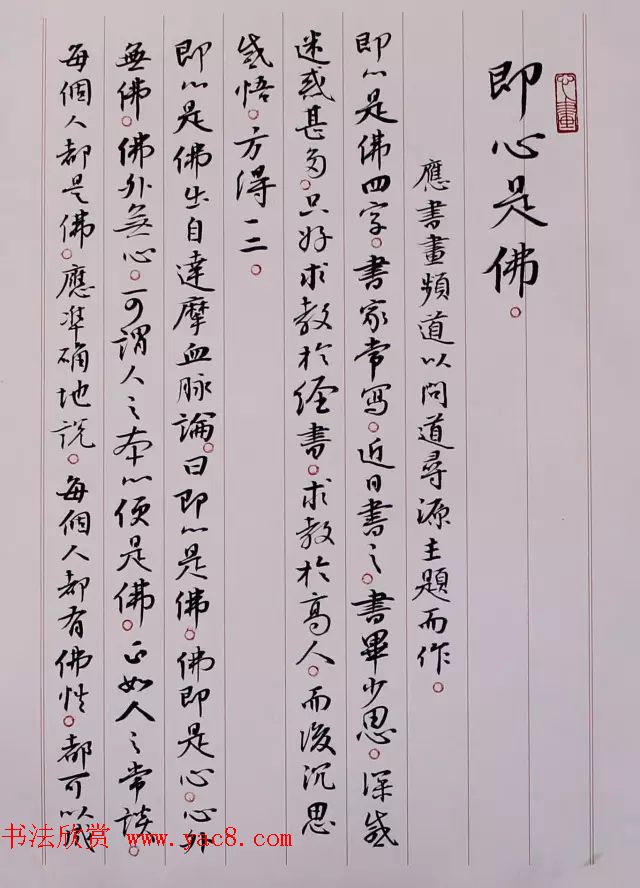 即心是佛。
應書畫頻道以問道尋源主題而作。
即心是佛四字。書家常寫。近日書之。書畢少思。深感
迷惑甚多。只好求教於經書。求教於高人。而後沉思
感悟。方得一二。
即心是佛出自達摩血脉論。曰即心是佛。佛即是心。心外
無佛。佛外無心。可謂人之本心便是佛。正如人之常談。
每個人都是佛。應準确地説。每個人都有佛性。都可以成
书法欣赏 www.yac8.com